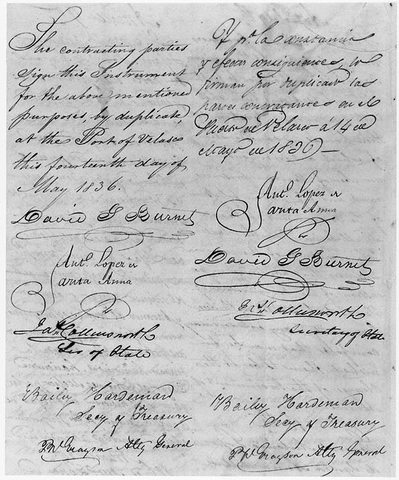 The contracting parties
Sign this Instrument
for the above mentioned
purposes, by duplicate,
at the Port of Velasco
this fourteenth day of
May 1836.
David G Burnet
Antº Lopez de
Santa Anna
Jas Collinsworth
Sec of State
Baily Hardeman
Secy of Treasury
P. W. Grayson Atty General
Y pª la constancia
y efectos consiguientes, lo
firman por duplicado las
partes contratantes en el
Puerto de Velasco á 14 de
Mayo de 1836 —
Antº Lopez de
Santa Anna
David G Burnet
Jas Collinsworth
Secretary of State
Baily Hardeman
Secy of Treasury
P. W. Grayson Atty General